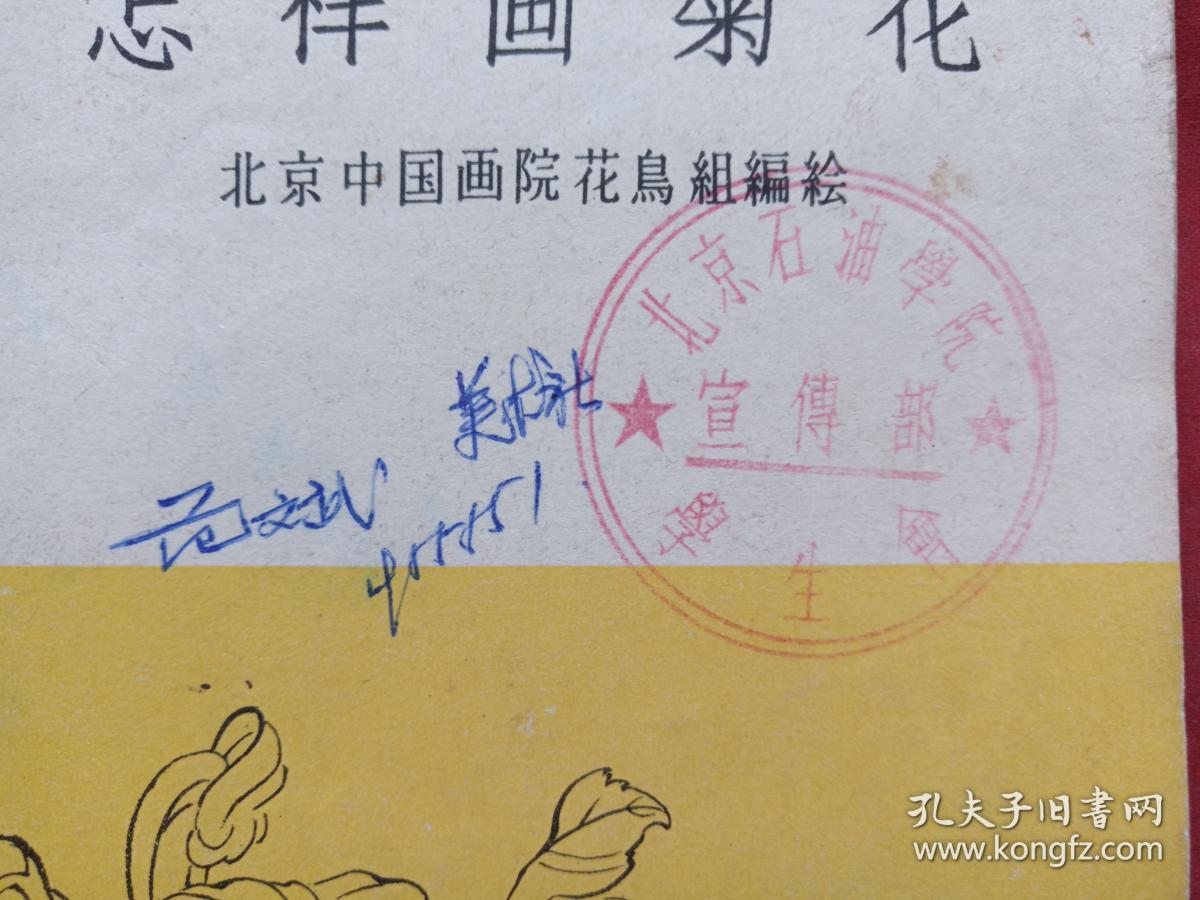 怎样画菊花
北京中国画院花鳥組編絵
北京石油學院
宣傳部
學生會
美术社
范文斌
孔夫子旧书网
www.kongfz.com